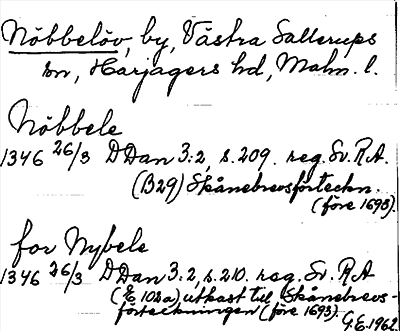 Nöbbelöv, by, Västra Sallerups
sn, Harjagers hd, Malm. l.
Nöbbele
1346 26/3 DDan 3:2, s. 209. reg. Sv. R.A.
(B29) Skånebrevsförteckn.
(före 1693).
for Nybele
1346 26/3 DDan 3:2, s. 210. reg. Sv. R.A
(E 102a) utkast till Skånebrevs-
förteckningen (före 1693).
G.E. 1962.